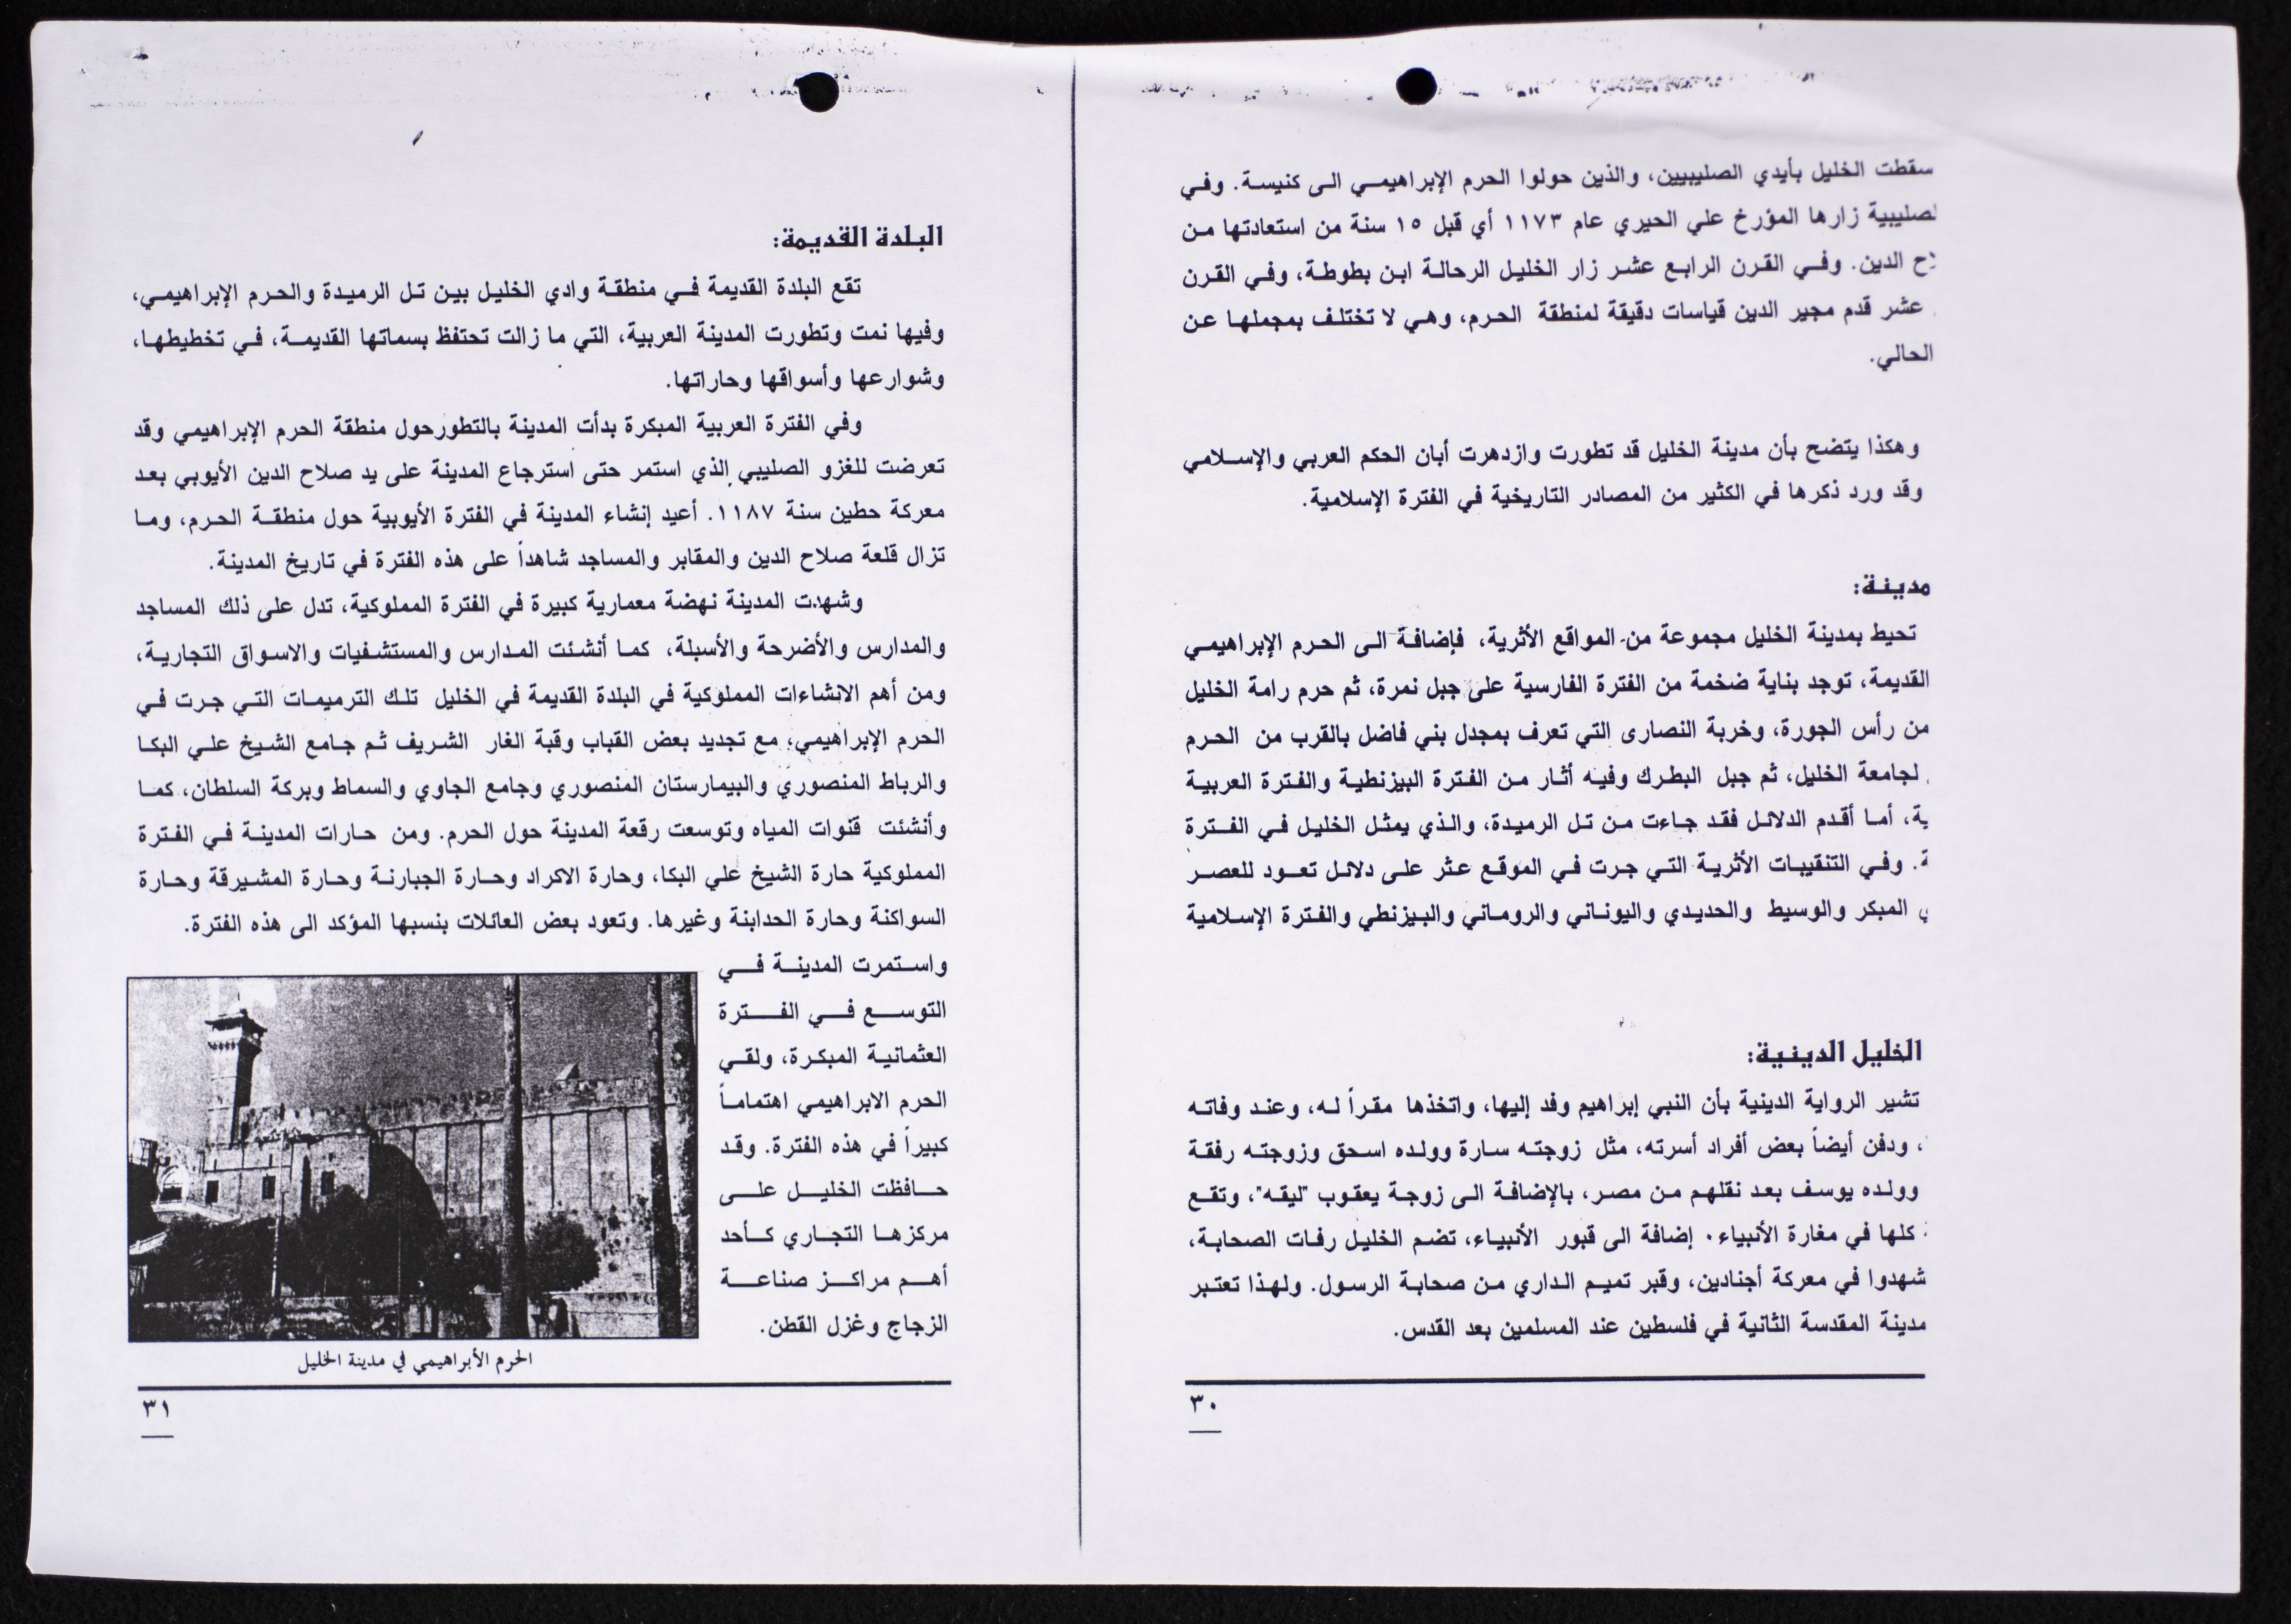 سقطت الخليل بأيدي الصليبيين، والذين حولوا الحرم الإبراهيمي الى كنيسة. وفي
لصليبية زارها المؤرخ علي الحيري عام ١١٧٣ أي قبل ١٥ سنة من استعادتها من
الدين. وفي القرن الرابع عشر زار الخليل الرحالة ابن بطوطة، وفي القرن
عشر قدم مجير الدين قياسات دقيقة لمنطقة الحرم، وهي لا تختلف بمجملها عن
الحالي.
وهكذا يتضح بأن مدينة الخليل قد تطورت وازدهرت أبان الحكم العربي والإسلامي
وقد ورد ذكرها في الكثير من المصادر التاريخية في الفترة الإسلامية.
مدينة:
تحيط بمدينة الخليل مجموعة من المواقع الأثرية، فإضافة الى الحرم الإبراهيمي
القديمة، توجد بناية ضخمة من الفترة الفارسية على جبل نمرة، ثم حرم رامة الخليل
من رأس الجورة، وخربة النصارى التي تعرف بمجدل بني فاضل بالقرب من الحرم
لجامعة الخليل، ثم جبل البطرك وفيه أثار من الفترة البيزنطية والفترة العربية
ية، أما أقدم الدلائل فقد جاءت من تل الرميدة، والذي يمثل الخليل في الفترة
ة. وفي التنقيبات الأثرية التي جرت في الموقع عثر على دلائل تعود للعصر
ي المبكر والوسيط والحديدي واليوناني والروماني والبيزنطي والفترة الإسلامية
الخليل الدينية:
تشير الرواية الدينية بأن النبي إبراهيم وفد إليها، واتخذها مقراً له، وعند وفاته
، ودفن أيضاً بعض أفراد أسرته، مثل زوجته سارة وولده اسحق وزوجته رفقة
وولده يوسف بعد نقلهم من مصر، بالإضافة الى زوجة يعقوب "ليقه"، وتقع
كلها في مغارة الأنبياء٠ إضافة الى قبور الأنبياء، تضم الخليل رفات الصحابة،
شهدوا في معركة أجنادين، وقبر تميم الداري من صحابة الرسول. ولهذا تعتبر
مدينة المقدسة الثانية في فلسطين عند المسلمين بعد القدس.
٣٠
البلدة القديمة:
تقع البلدة القديمة في منطقة وادي الخليل بين تل الرميدة والحرم الإبراهيمي،
وفيها نمت وتطورت المدينة العربية، التي ما زالت تحتفظ بسماتها القديمة، في تخطيطها،
وشوارعها وأسواقها وحاراتها.
وفي الفترة العربية المبكرة بدأت المدينة بالتطورحول منطقة الحرم الإبراهيمي وقد
تعرضت للغزو الصليبي الذي استمر حتى استرجاع المدينة على يد صلاح الدين الأيوبي بعد
معركة حطين سنة ١١٨٧. أعيد إنشاء المدينة في الفترة الأيوبية حول منطقة الحرم، وما
تزال قلعة صلاح الدين والمقابر والمساجد شاهداً على هذه الفترة في تاريخ المدينة.
وشهدت المدينة نهضة معمارية كبيرة في الفترة المملوكية، تدل على ذلك المساجد
والمدارس والأضرحة والأسبلة، كما أنشئت المدارس والمستشفيات والاسواق التجارية،
ومن أهم الانشاءات المملوكية في البلدة القديمة في الخليل تلك الترميمات التي جرت في
الحرم الإبراهيمي، مع تجديد بعض القباب وقبة الغار الشريف ثم جامع الشيخ علي البكا
والرباط المنصوري والبيمارستان المنصوري وجامع الجاوي والسماط وبركة السلطان، كما
وأنشئت قنوات المياه وتوسعت رقعة المدينة حول الحرم. ومن حارات المدينة في الفترة
المملوكية حارة الشيخ علي البكا، وحارة الاكراد وحارة الجبارنة وحارة المشيرقة وحارة
السواكنة وحارة الحدابنة وغيرها. وتعود بعض العائلات بنسبها المؤكد الى هذه الفترة.
واستمرت المدينة في
التوسع في الفترة
العثمانية المبكرة، ولقي
الحرم الابراهيمي اهتماماً
كبيراً في هذه الفترة. وقد
حافظت الخليل على
مركزها التجاري كأحد
أهم مراكز صناعة
الزجاج وغزل القطن.
الحرم الأبراهيمي في مدينة الخليل
٣١